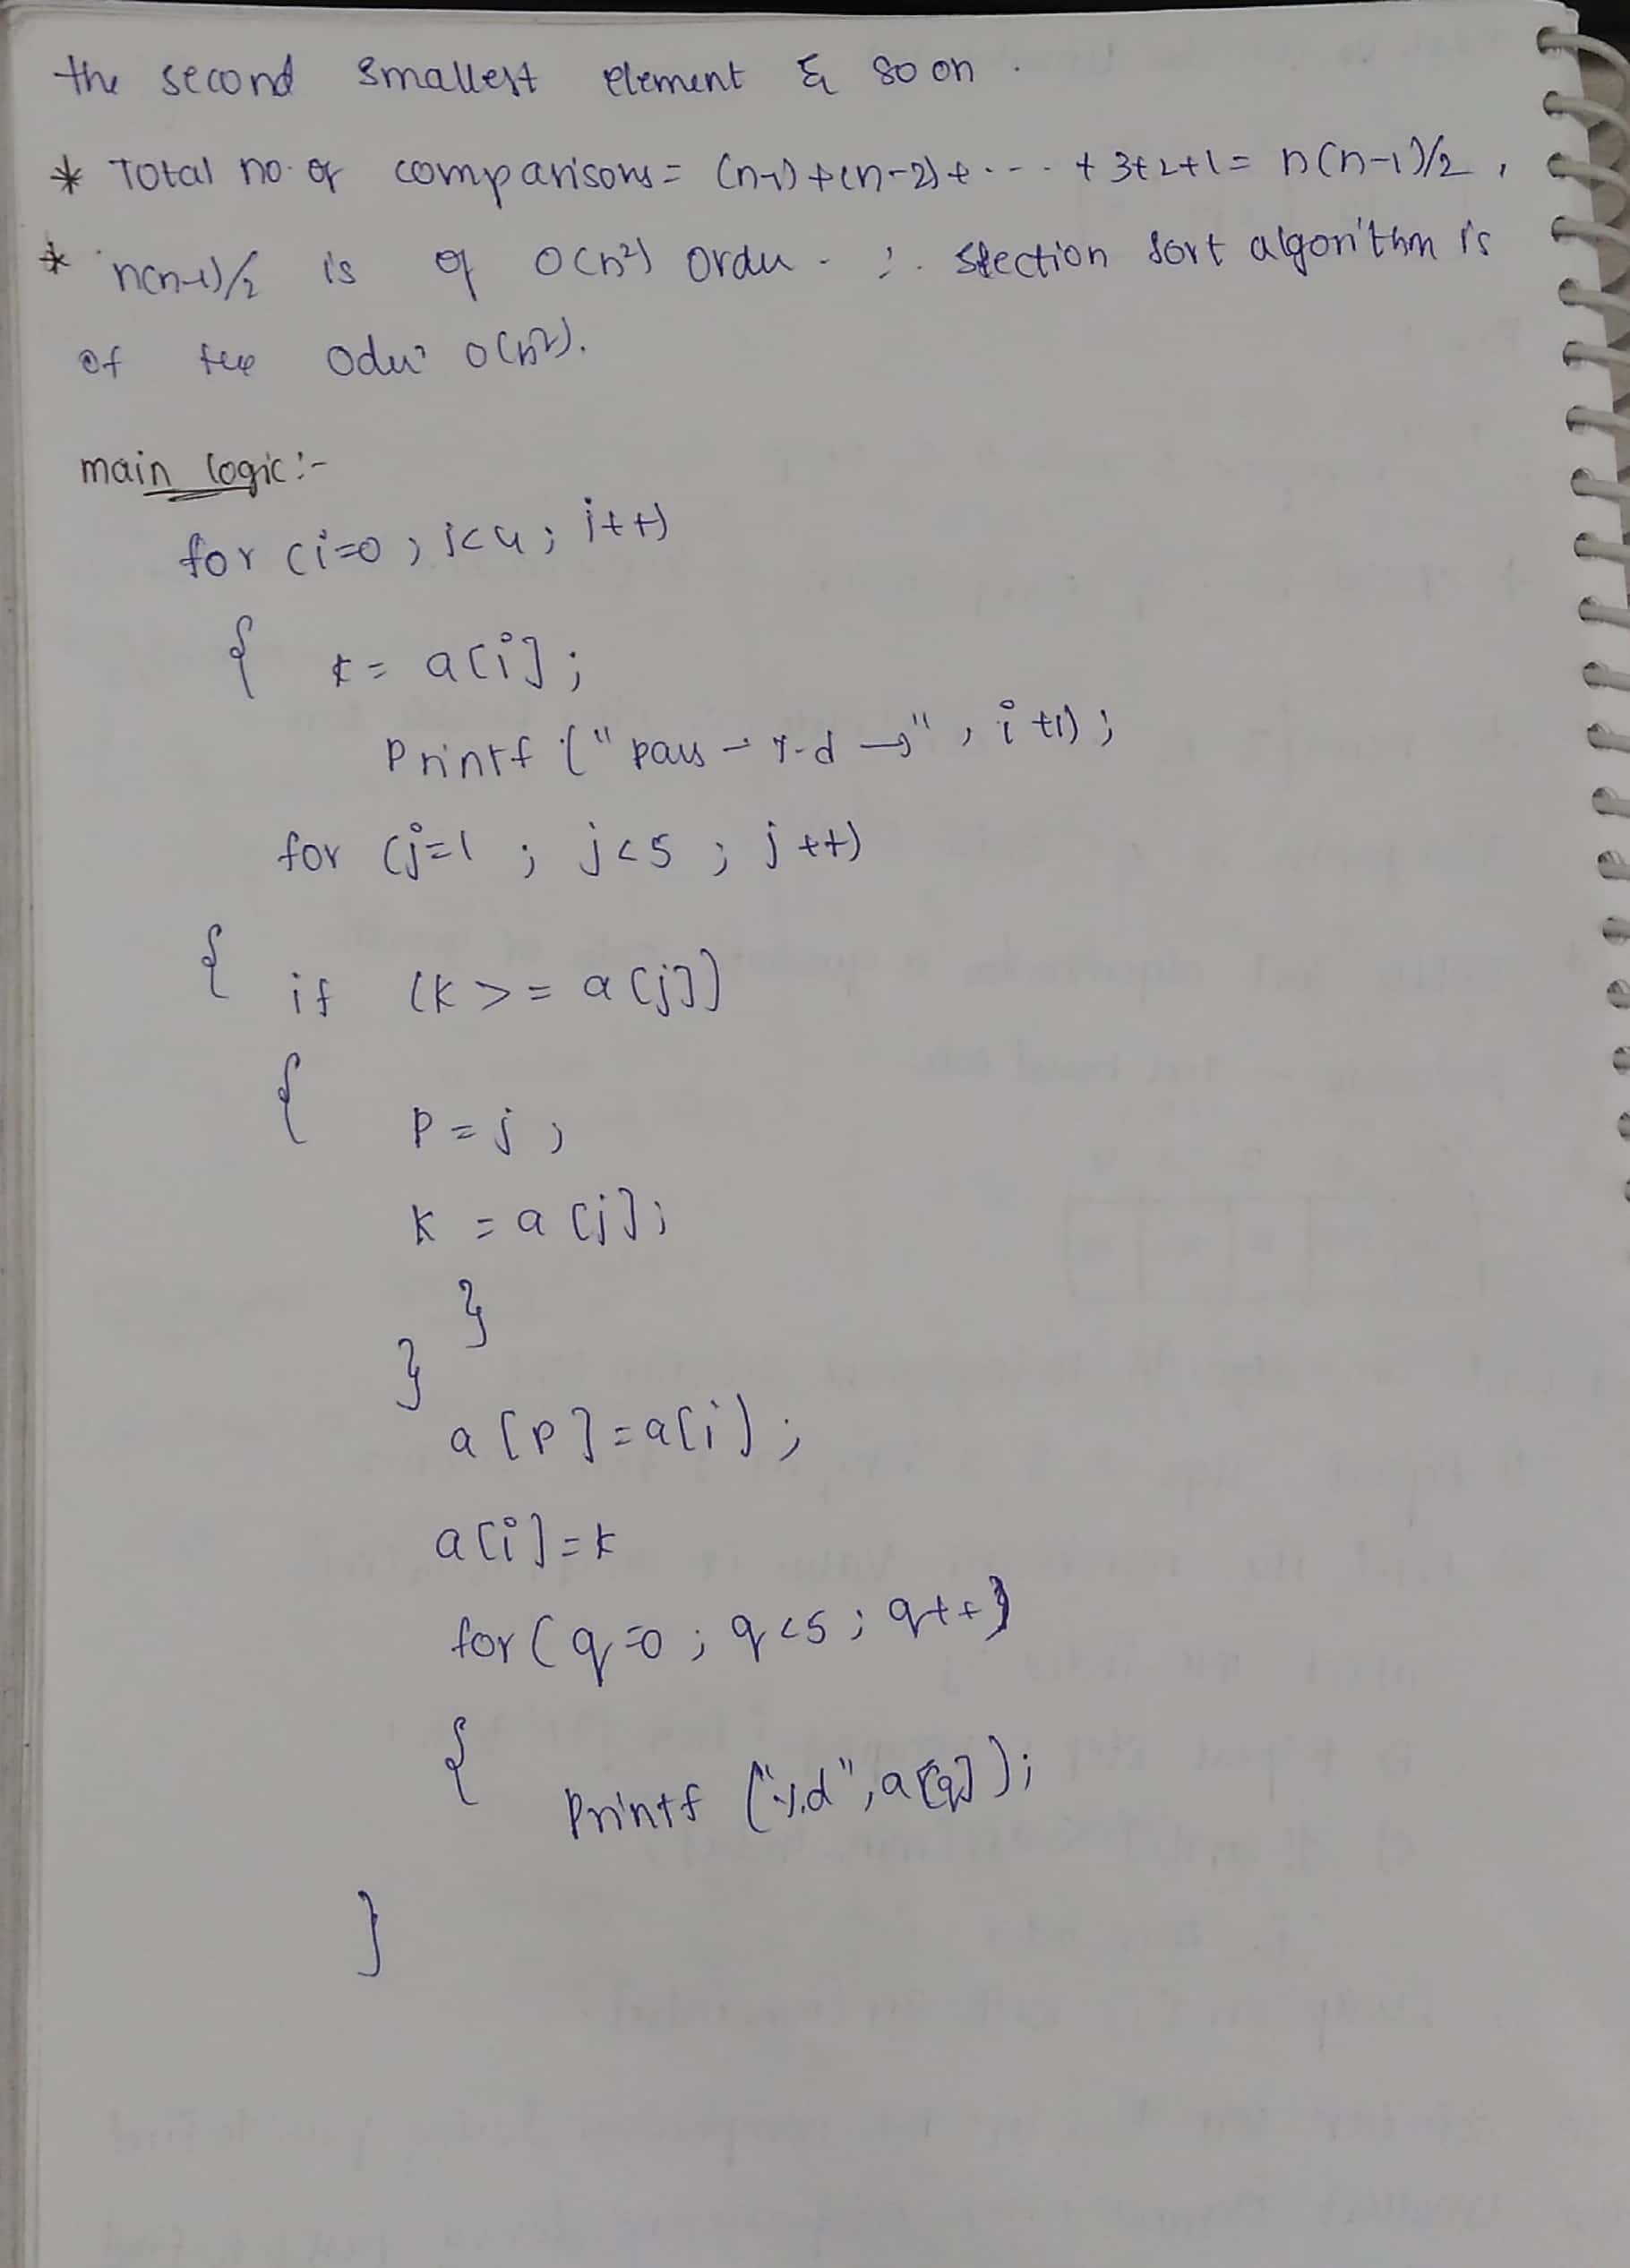 the second smallest element & so on .
* Total no. of comparisons = (n-1)+(n-2)+ ---- + 3+2+1 = n(n-1)/2 ,
* n(n-1)/2 is of O(n²) order . ∴ Slection sort algorithm is
of the oder O(n²).
main logic :-
for (i=0 ; i<4 ; i++)
{ k = a[i] ;
Printf ("pass - %d →" , i+1) ;
for (j=1 ; j<5 ; j++)
{ if (k >= a[j])
{ p = j ;
k = a[j] ;
}
}
a[p] = a[i] ;
a[i] = k
for (q=0 ; q<5 ; q++)
{ Printf ("%d", a[q]) ;
}